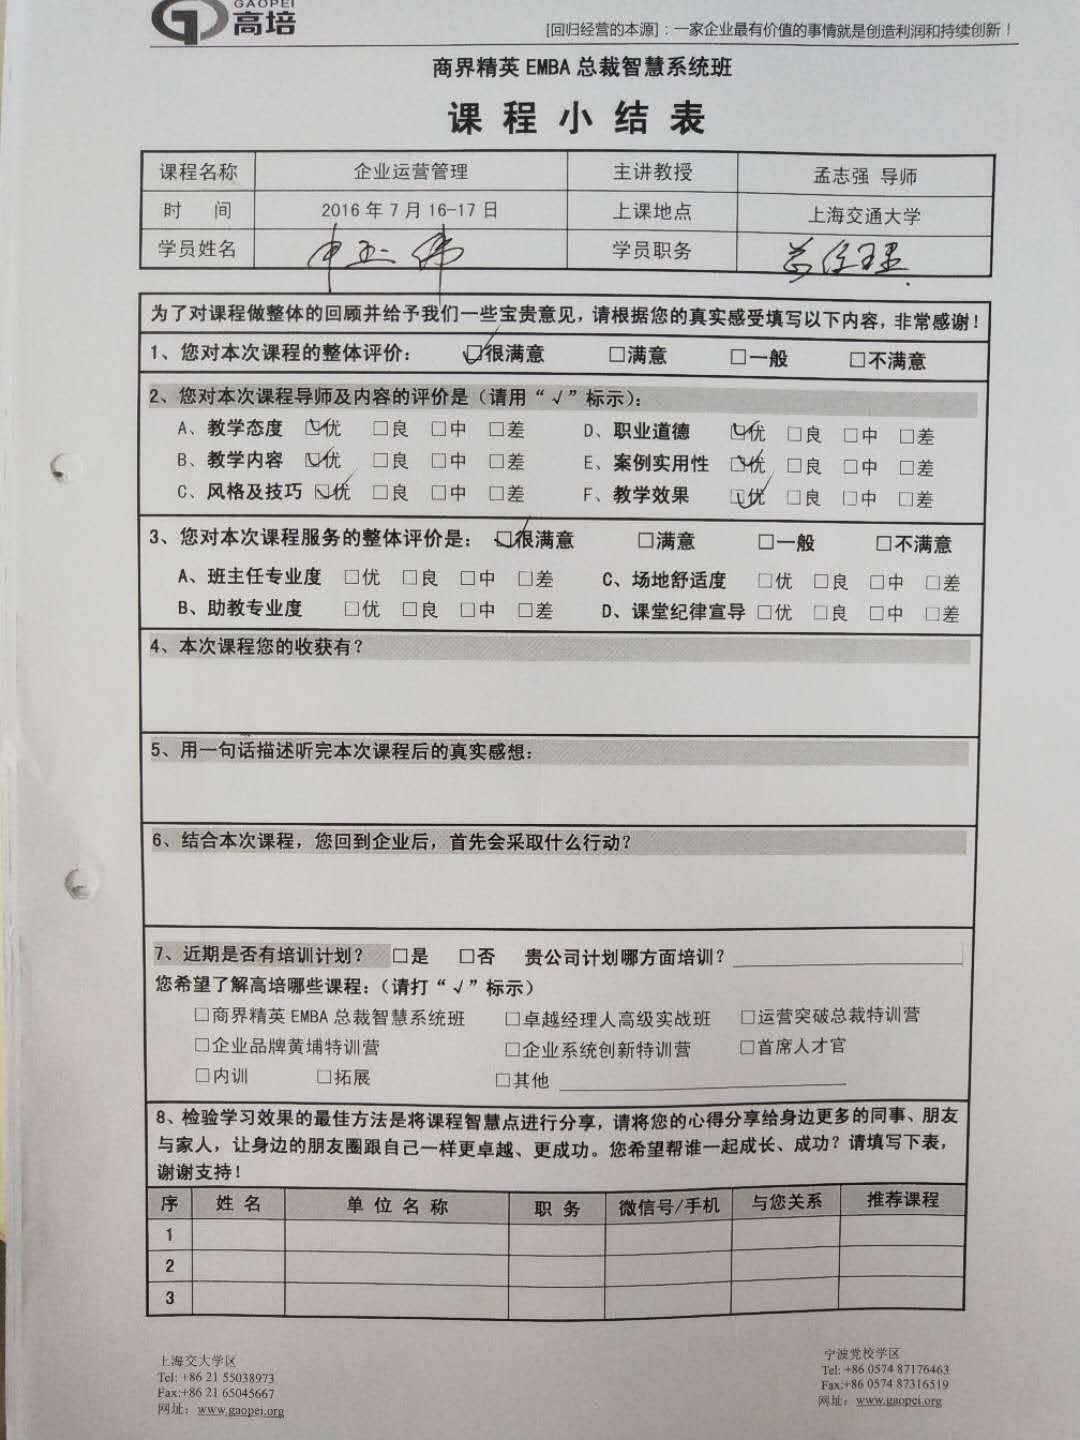 GAOPEI
高培
[回归经营的本源]：一家企业最有价值的事情就是创造利润和持续创新！
商界精英 EMBA 总裁智慧系统班
课 程 小 结 表
课程名称 企业运营管理 主讲教授 孟志强 导师
时 间 2016 年 7 月 16-17 日 上课地点 上海交通大学
学员姓名 学员职务 总经理
为了对课程做整体的回顾并给予我们一些宝贵意见，请根据您的真实感受填写以下内容，非常感谢！
1、您对本次课程的整体评价： ☑很满意 □满意 □一般 □不满意
2、您对本次课程导师及内容的评价是（请用“√”标示）：
A、教学态度 ☑优 □良 □中 □差 D、职业道德 ☑优 □良 □中 □差
B、教学内容 ☑优 □良 □中 □差 E、案例实用性 ☑优 □良 □中 □差
C、风格及技巧 ☑优 □良 □中 □差 F、教学效果 ☑优 □良 □中 □差
3、您对本次课程服务的整体评价是： ☑很满意 □满意 □一般 □不满意
A、班主任专业度 □优 □良 □中 □差 C、场地舒适度 □优 □良 □中 □差
B、助教专业度 □优 □良 □中 □差 D、课堂纪律宣导 □优 □良 □中 □差
4、本次课程您的收获有？
5、用一句话描述听完本次课程后的真实感想：
6、结合本次课程，您回到企业后，首先会采取什么行动？
7、近期是否有培训计划？ □是 □否 贵公司计划哪方面培训？
您希望了解高培哪些课程：（请打“√”标示）
□商界精英 EMBA 总裁智慧系统班 □卓越经理人高级实战班 □运营突破总裁特训营
□企业品牌黄埔特训营 □企业系统创新特训营 □首席人才官
□内训 □拓展 □其他
8、检验学习效果的最佳方法是将课程智慧点进行分享，请将您的心得分享给身边更多的同事、朋友
与家人，让身边的朋友圈跟自己一样更卓越、更成功。您希望帮谁一起成长、成功？请填写下表，
谢谢支持！
序 姓 名 单 位 名 称 职 务 微信号/手机 与您关系 推荐课程
1
2
3
上海交大学区 宁波党校学区
Tel: +86 21 55038973 Tel: +86 0574 87176463
Fax:+86 21 65045667 Fax:+86 0574 87316519
网址：www.gaopei.org 网址：www.gaopei.org